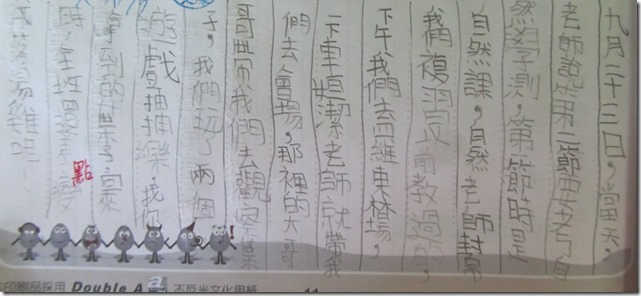 九月二十三日，當天，
老師說第二節要考自
然學測，第一節時是
自然課，自然老師幫
我們複習以前教過的，
下午我們去四維東楂場，
一下車恒潔老師就帶我
們去會場，那裡的大哥
哥帶我們去觀察葉
子，我們玩了兩個
遊戲抽抽樂，我們
拿到的葉子
時，全班
點
印刷品採用 Double A 不反光文化用紙